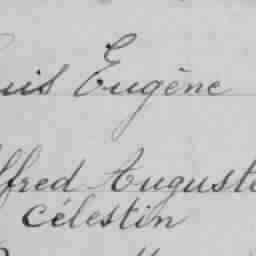 uis Eugène
lfred Auguste
Célestin